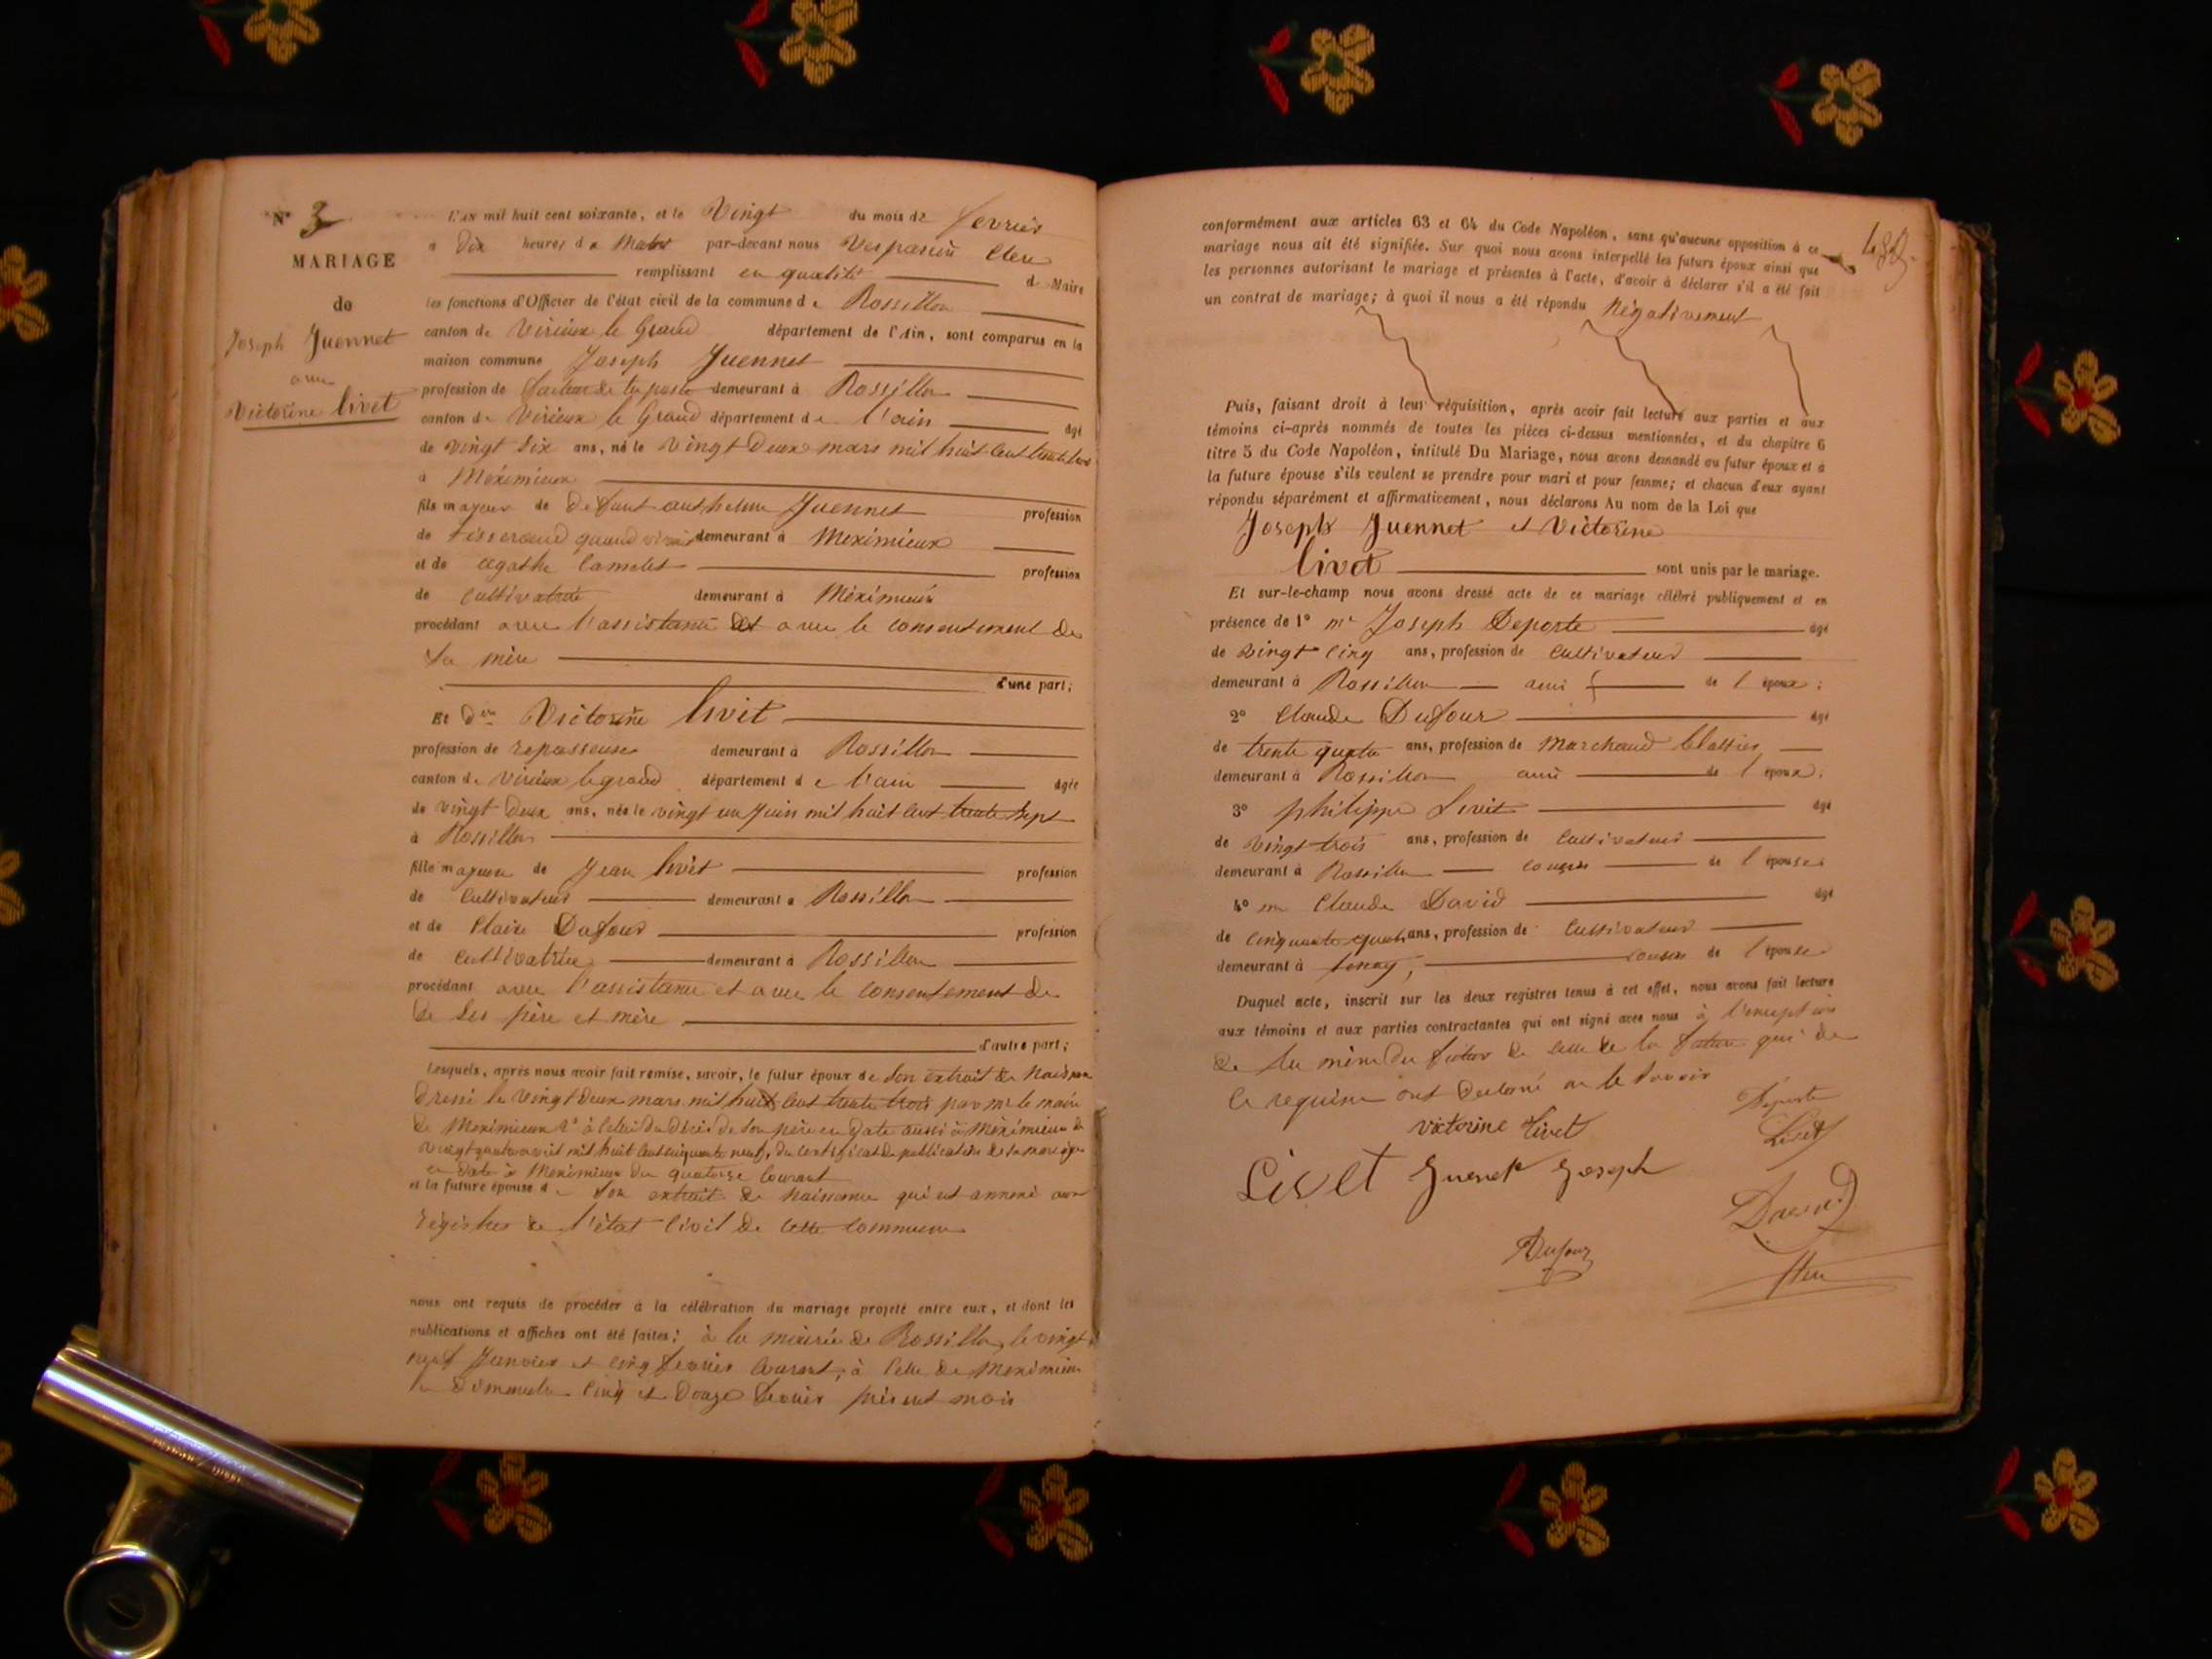 N° 3
MARIAGE
de
Joseph Juennet
avec
Victorine livet
L'AN mil huit cent soixante, et le Vingt du mois de fevrier
à Dix heures du Matin par-devant nous Vespasien
remplissant en qualité de Maire
les fonctions d'Officier de l'état civil de la commune de Rossillon
canton de Virieux le Grand département de l'Ain, sont comparus en la
maison commune Joseph Juennet
profession de facteur de la poste demeurant à Rossillon
canton de Virieux le Grand département de l'ain âgé
de vingt six ans, né le vingt Deux mars mil huit cent trente trois
à Méximieux
fils majeur de Defunt anthelme Juennet profession
de tisserand quand vivait demeurant à Meximieux
et de agathe Camelet profession
de cultivatrice demeurant à Méximieux
procédant avec l'assistance et avec le consentement de
sa mère
d'une part;
Et Dlle Victorine livet
profession de repasseuse demeurant à Rossillon
canton de Virieux le grand département de l'ain âgée
de vingt Deux ans, née le vingt un Juin mil huit cent trente sept
à Rossillon
fille majeure de Jean livet profession
de Cultivateur demeurant à Rossillon
et de Claire Dufour profession
de cultivatrice demeurant à Rossillon
procédant avec l'assistance et avec le consentement de
de ses père et mère
d'autre part;
Lesquels, après nous avoir fait remise, savoir, le futur époux de son extrait de Naissance
Dressé le vingt Deux mars mil huit cent trente trois par mr le maire
de Meximieux 2° à celui du décès de son père en Date aussi à Méximieux du
vingt quatre avril mil huit cent cinquante neuf, du certificat de publication de sa mariage
en Date à Meximieux du quatorze Courant
et la future épouse de son extrait de Naissance qui est annexé aux
régistres de l'état civil de cette commune
nous ont requis de procéder à la célébration du mariage projeté entre eux, et dont les
publications et affiches ont été faites; à la mairie de Rossillon, le vingt
neuf Janvier et cinq fevrier Courant, à celle de Meximieux
le Dimanche cinq et Douze fevrier présent mois
conformément aux articles 63 et 64 du Code Napoléon, sans qu'aucune opposition à ce
mariage nous ait été signifiée. Sur quoi nous avons interpellé les futurs époux ainsi que
les personnes autorisant le mariage et présentes à l'acte, d'avoir à déclarer s'il a été fait
un contrat de mariage; à quoi il nous a été répondu Négativement
Puis, faisant droit à leur réquisition, après avoir fait lecture aux parties et aux
témoins ci-après nommés de toutes les pièces ci-dessus mentionnées, et du chapitre 6
titre 5 du Code Napoléon, intitulé Du Mariage, nous avons demandé au futur époux et à
la future épouse s'ils veulent se prendre pour mari et pour femme; et chacun d'eux ayant
répondu séparément et affirmativement, nous déclarons Au nom de la Loi que
Joseph Juennet et Victorine
livet sont unis par le mariage.
Et sur-le-champ nous avons dressé acte de ce mariage célébré publiquement et en
présence de 1° mr Joseph Deporte âgé
de vingt cinq ans, profession de Cultivateur
demeurant à Rossillon ami de l'époux;
2° Claude Dufour âgé
de trente quatre ans, profession de Marchand blattier
demeurant à Rossillon ami de l'époux;
3° philippe Livet âgé
de vingt trois ans, profession de cultivateur
demeurant à Rossillon cousin de l'épouse
4° mr Claude David âgé
de cinquante quatre ans, profession de Cultivateur
demeurant à tenay, cousin de l'épouse
Duquel acte, inscrit sur les deux registres tenus à cet effet, nous avons fait lecture
aux témoins et aux parties contractantes qui ont signé avec nous à l'exception
de la mère du futur de celle de la future qui de
ce requise ont declaré ne le savoir
Deporte
victorine livet Livet
Livet Juenet Joseph
David
Dufour